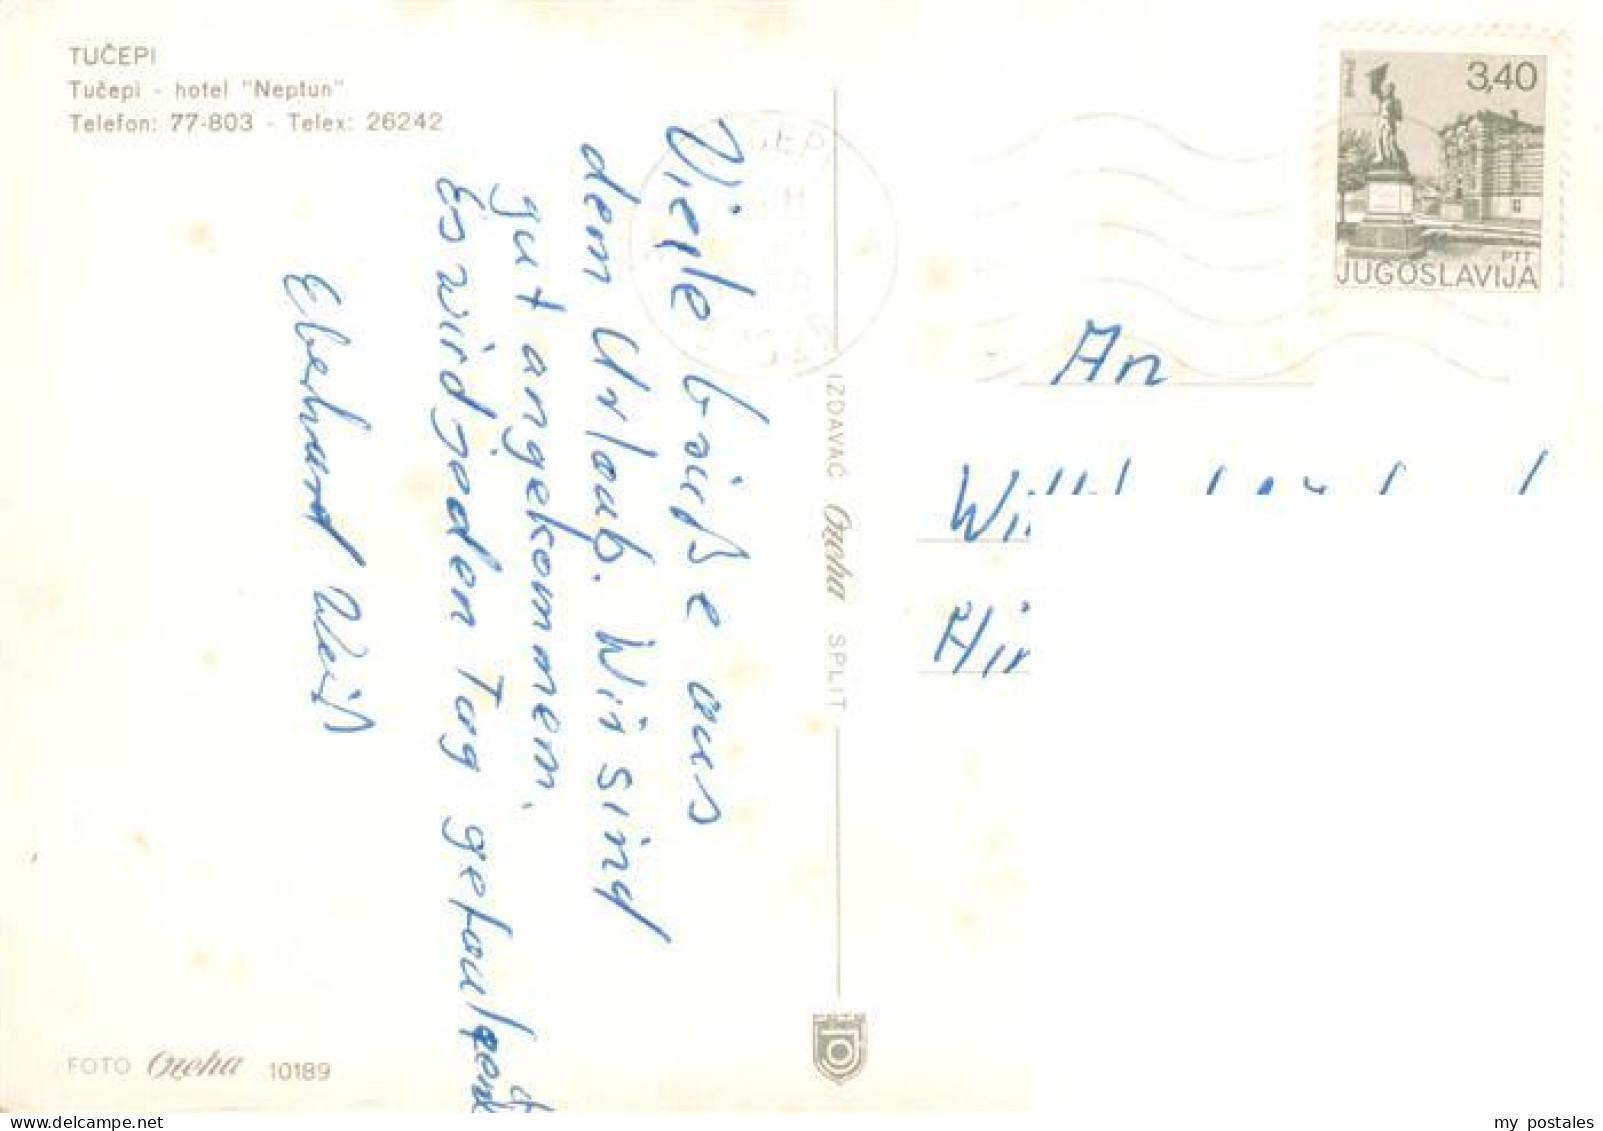 TUČEPI
Tučepi - hotel "Neptun"
Telefon: 77-803 - Telex: 26242
Viele Grüße aus
dem Urlaub. Wir sind
gut angekommen.
Es wird jeden Tag gefaulenzt
Eberhard Weiß
IZDAVAČ Ozeha SPLIT
FOTO Ozeha 10189
3,40
PTT
JUGOSLAVIJA
An
my postales